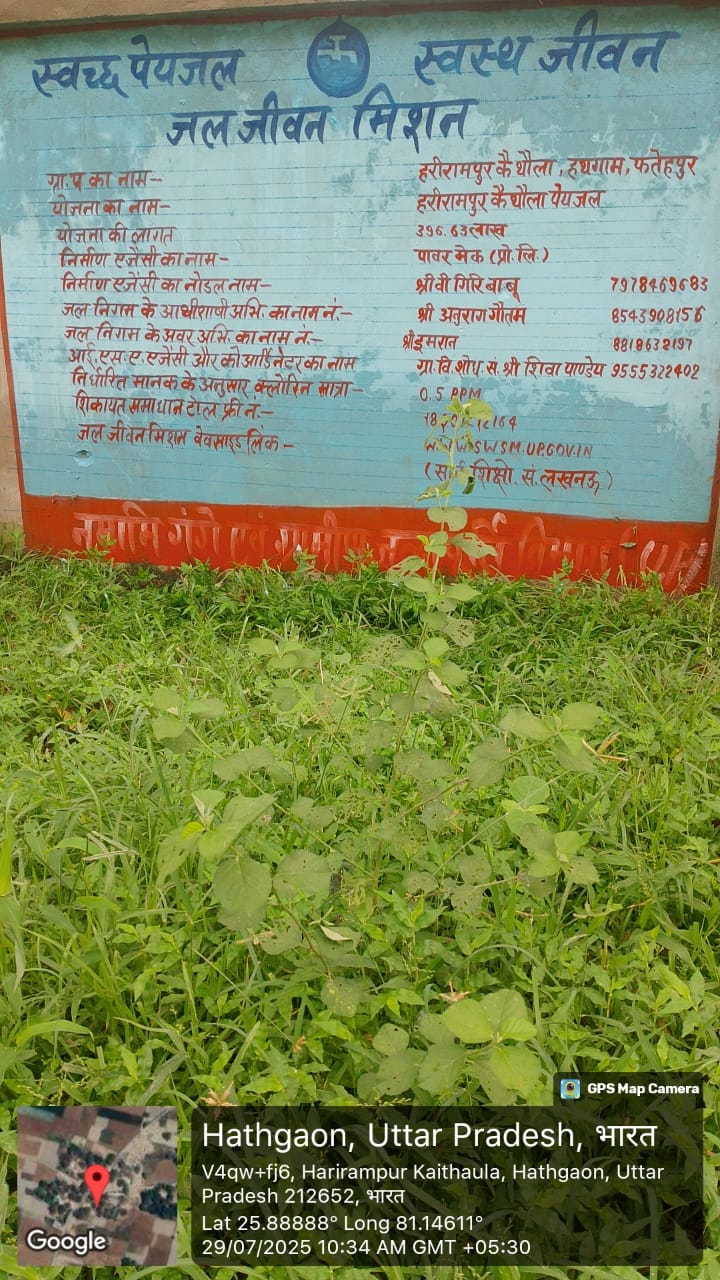 स्वच्छ पेयजल स्वस्थ जीवन
जल जीवन मिशन
ग्रा.प का नाम- हरीरामपुर कैथौला, हथगाम, फतेहपुर
योजना का नाम- हरीरामपुर कैथौला पेयजल
योजना की लागत 396.63लाख
निर्माण एजेंसी का नाम- पावर मेक (प्रो.लि.)
निर्माण एजेंसी का नोडल नाम- श्री वी गिरि बाबू 7978469683
जल निगम के आधीशाषी अभि. का नाम नं:- श्री अनुराग गौतम 8543908156
जल निगम के अवर अभि. का नाम नं:- श्री इमरान 8818632197
आई.एस.ए.एजेंसी और को आर्डिनेटर का नाम ग्रा.वि.शोध.सं.श्री शिवा पाण्डेय 9555322402
निर्धारित मानक के अनुसार क्लोरिन मात्रा- 0.5 PPM
शिकायत समाधान टोल फ्री नं:-
जल जीवन मिशन वेबसाइड लिंक- SWSM.UP.GOV.IN
सं. लखनऊ)
नमामि गंगे एवं ग्रामीण
GPS Map Camera
Hathgaon, Uttar Pradesh, भारत
V4qw+fj6, Harirampur Kaithaula, Hathgaon, Uttar
Pradesh 212652, भारत
Lat 25.88888° Long 81.14611°
29/07/2025 10:34 AM GMT +05:30
Google